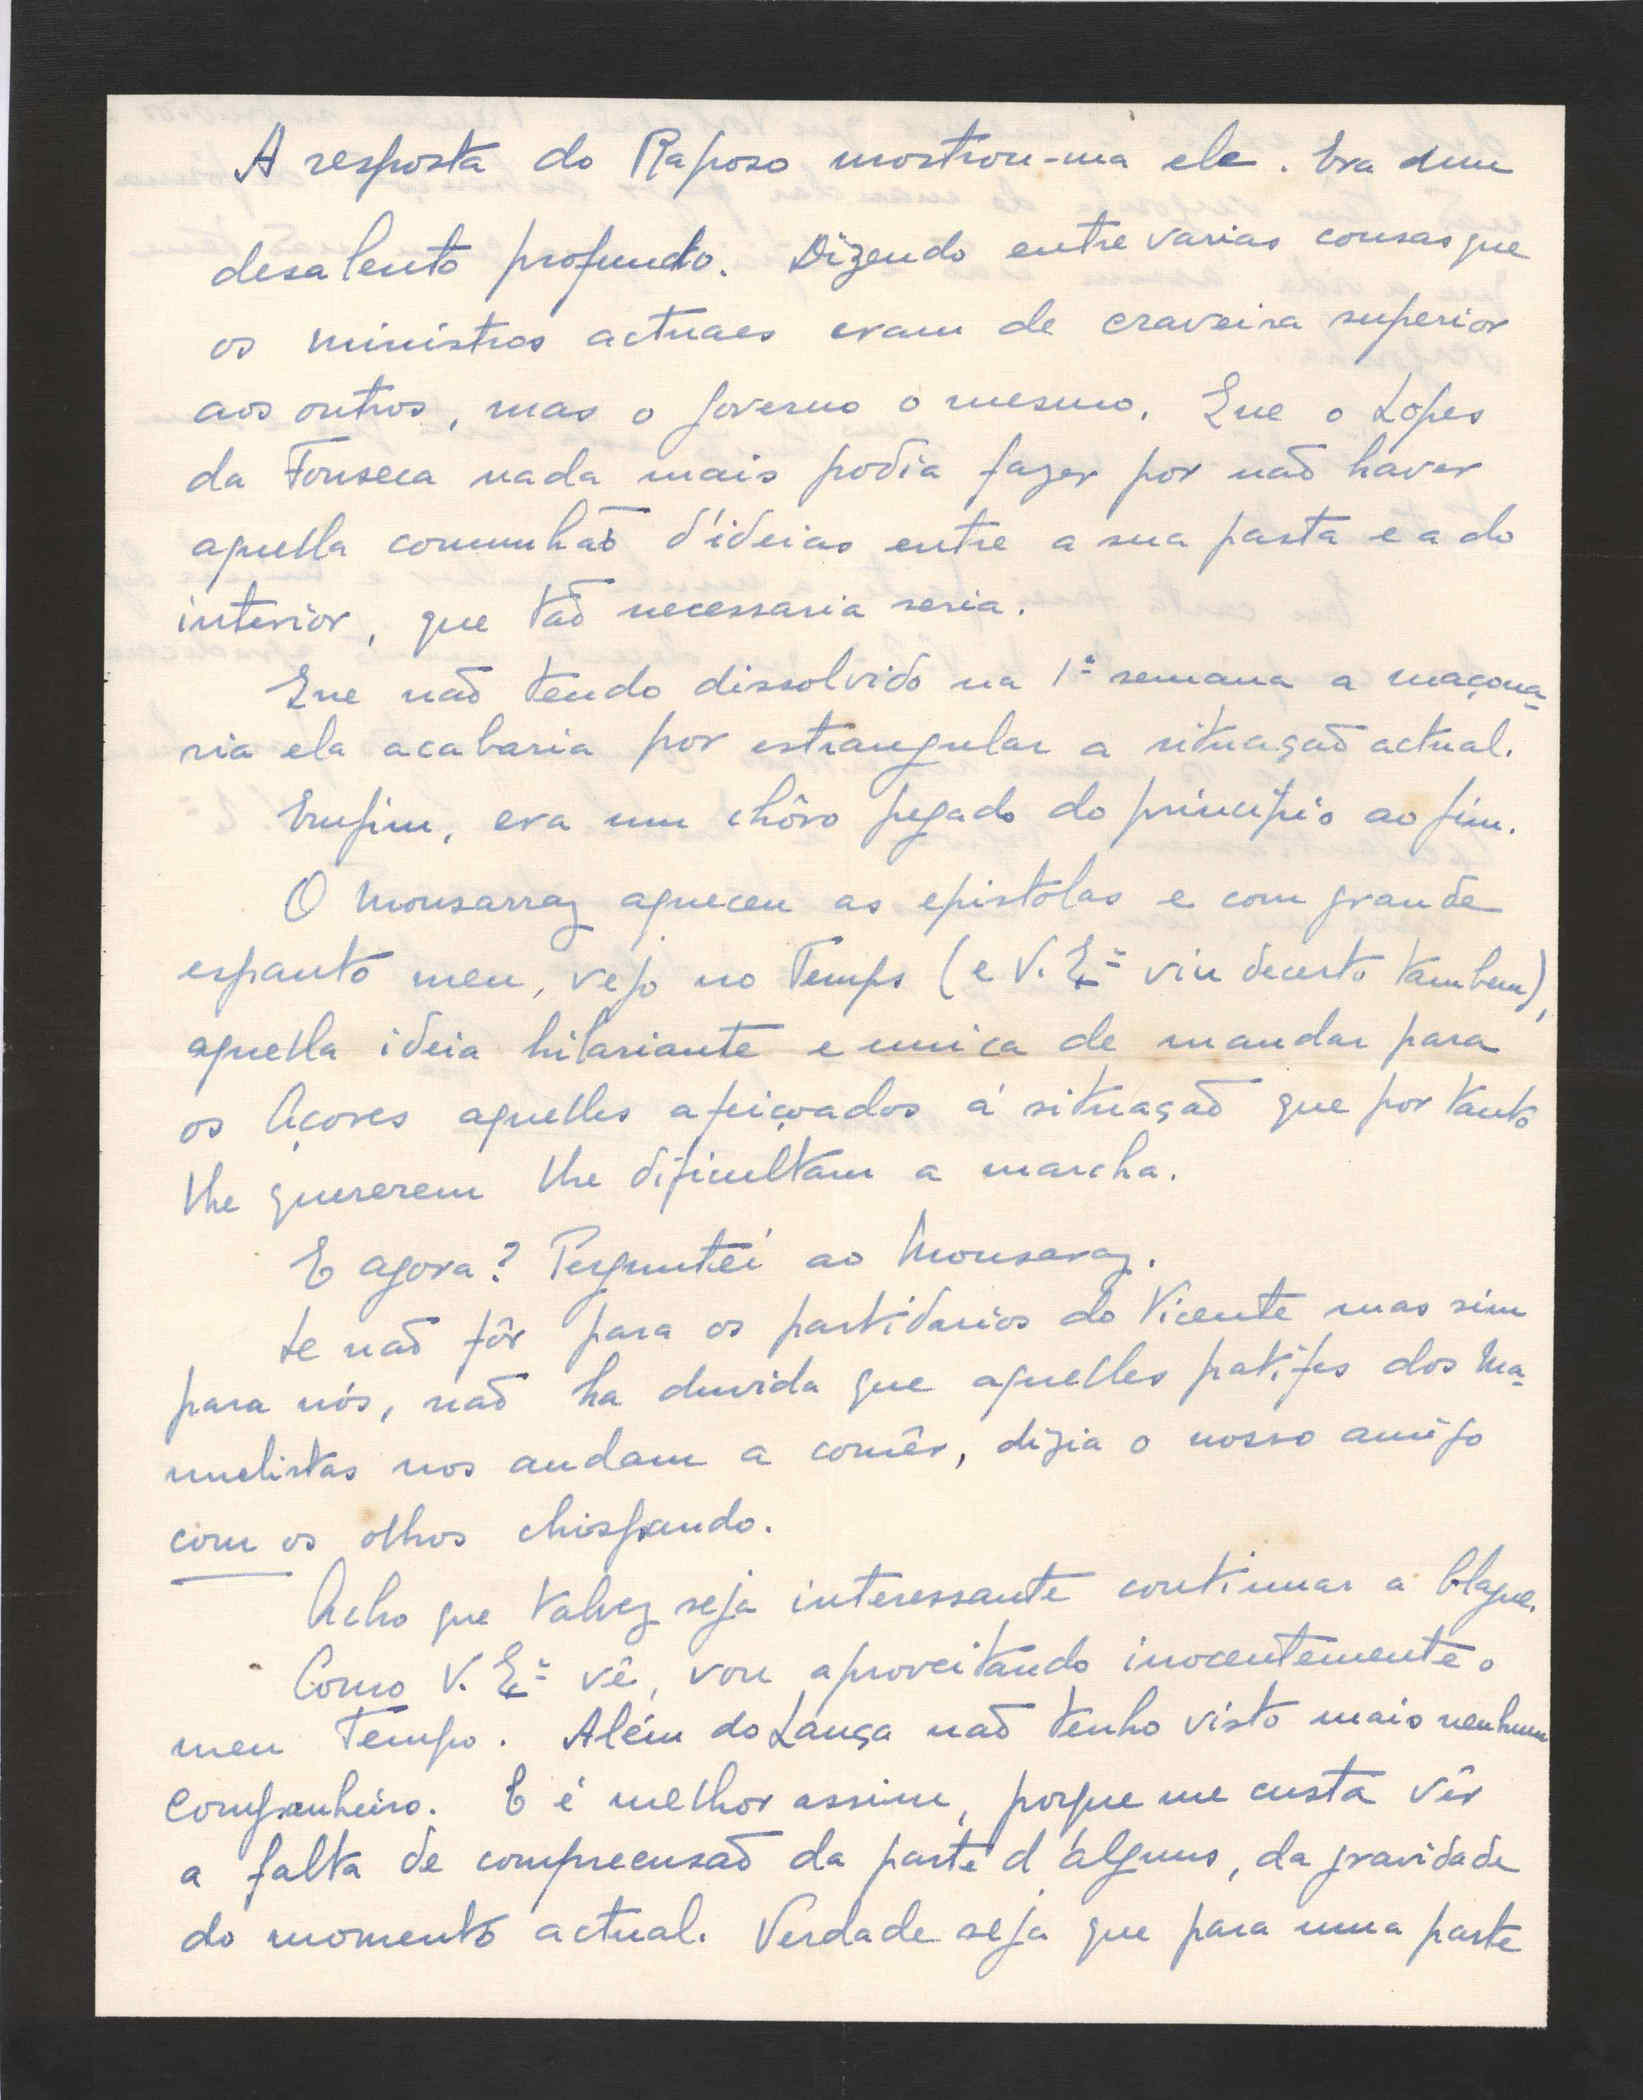 A resposta do Raposo mostrou-ma ele. Era dum
desalento profundo. Dizendo entre varias cousas que
os ministros actuaes eram de craveira superior
aos outros, mas o governo o mesmo. Que o Lopes
da Fonseca nada mais podia fazer por naõ haver
aquella comunhaõ d'ideias entre a sua pasta e a do
interior, que taõ necessaria seria.
Que naõ tendo dissolvido na 1ª semana a maçona-
ria ela acabaria por estrangular a situaçaõ actual.
Emfim, era um chôro pegado do principio ao fim.
O Monsarraz aqueceu as epistolas e com grande
espanto meu, vejo no Temps (e V. Exª viu decerto tambem),
aquella ideia hilariante e unica de mandar para
os Açores aquelles afeiçoados á situaçaõ que por tanto
lhe quererem lhe dificultam a marcha.
E agora? Perguntei ao Monsaraz.
Se naõ fôr para os partidarios do Vicente mas sim
para nós, naõ ha duvida que aquelles patifes dos Ma-
nuelistas nos andam a comêr, dizia o nosso amigo
com os olhos chispando.
Acho que talvez seja interessante continuar a blague.
Como V. Exª vê, vou aproveitando inocentemente o
meu Tempo. Além do Lança naõ tenho visto mais nenhum
companheiro. E é melhor assim, porque me custa vêr
a falta de compreensaõ da parte d'alguns, da gravidade
do momento actual. Verdade seja que para uma parte